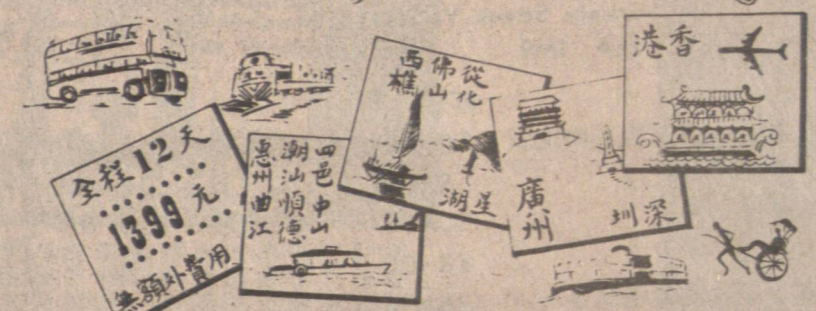 全程12天
1399元
無額外費用
四邑中山
潮汕順德
惠州曲江
從化
佛山
西樵
星湖
廣州
深圳
香港